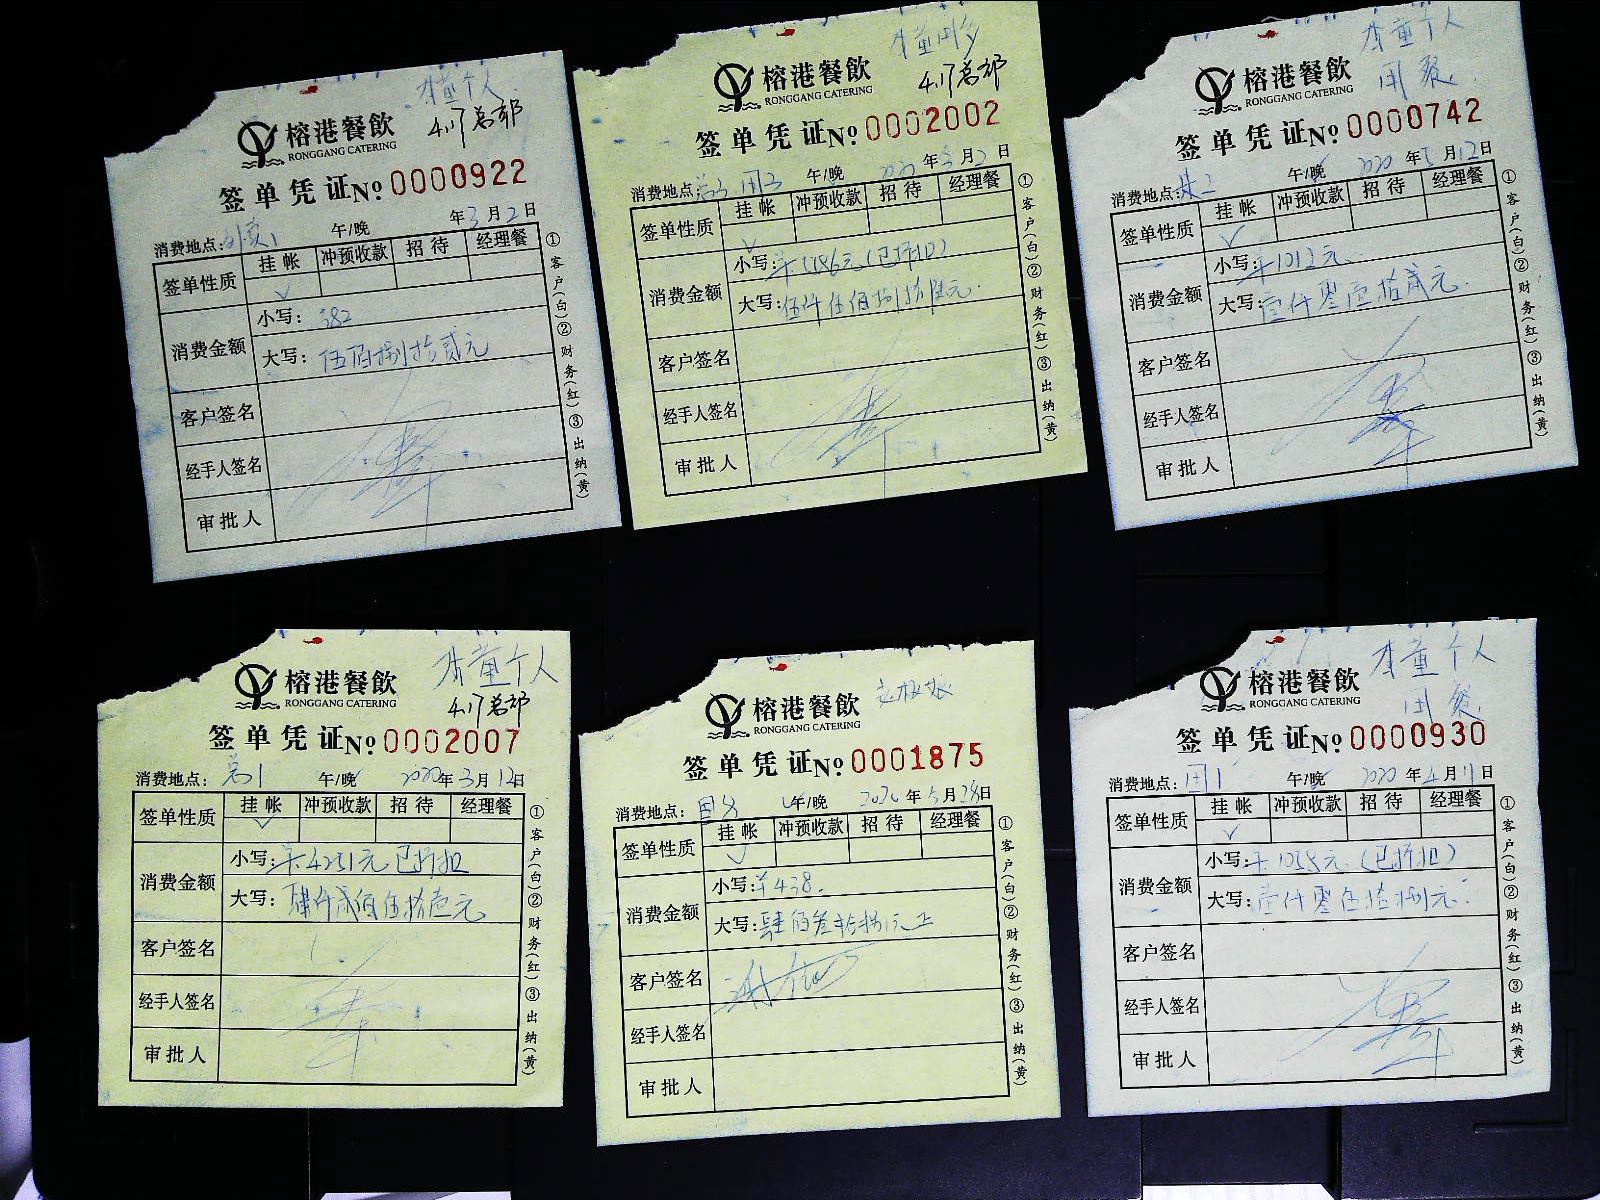 李董个人
4.17总部
榕港餐飲
RONGGANG CATERING
签单凭证№ 0000922
消费地点: 午/晚 年3月2日
签单性质 挂帐 冲预收款 招待 经理餐
✓
消费金额 小写: 582
大写: 伍佰捌拾贰元
客户签名
经手人签名
审批人
①客户(白)②财务(红)③出纳(黄)
李董
4.17总部
榕港餐飲
RONGGANG CATERING
签单凭证№ 0002002
消费地点: 午/晚 2020年3月2日
签单性质 挂帐 冲预收款 招待 经理餐
✓
消费金额 小写: ¥5586元(已折扣)
大写: 伍仟伍佰捌拾陆元
客户签名
经手人签名
审批人
①客户(白)②财务(红)③出纳(黄)
李董个人
团餐
榕港餐飲
RONGGANG CATERING
签单凭证№ 0000742
消费地点: 午/晚 2020年5月12日
签单性质 挂帐 冲预收款 招待 经理餐
✓
消费金额 小写: ¥1012元
大写: 壹仟零壹拾贰元
客户签名
经手人签名
审批人
①客户(白)②财务(红)③出纳(黄)
李董个人
4.17总部
榕港餐飲
RONGGANG CATERING
签单凭证№ 0002007
消费地点: 总1 午/晚 2020年3月12日
签单性质 挂帐 冲预收款 招待 经理餐
✓
消费金额 小写: ¥4251元 已折扣
大写: 肆仟贰佰伍拾壹元
客户签名
经手人签名
审批人
①客户(白)②财务(红)③出纳(黄)
榕港餐飲
RONGGANG CATERING
签单凭证№ 0001875
消费地点: 午/晚 2020年5月28日
签单性质 挂帐 冲预收款 招待 经理餐
✓
消费金额 小写: ¥438.
大写: 肆佰叁拾捌元正
客户签名
经手人签名
审批人
①客户(白)②财务(红)③出纳(黄)
李董个人
团餐
榕港餐飲
RONGGANG CATERING
签单凭证№ 0000930
消费地点: 团1 午/晚 2020年4月11日
签单性质 挂帐 冲预收款 招待 经理餐
✓
消费金额 小写: ¥1058元(已折扣)
大写: 壹仟零伍拾捌元
客户签名
经手人签名
审批人
①客户(白)②财务(红)③出纳(黄)